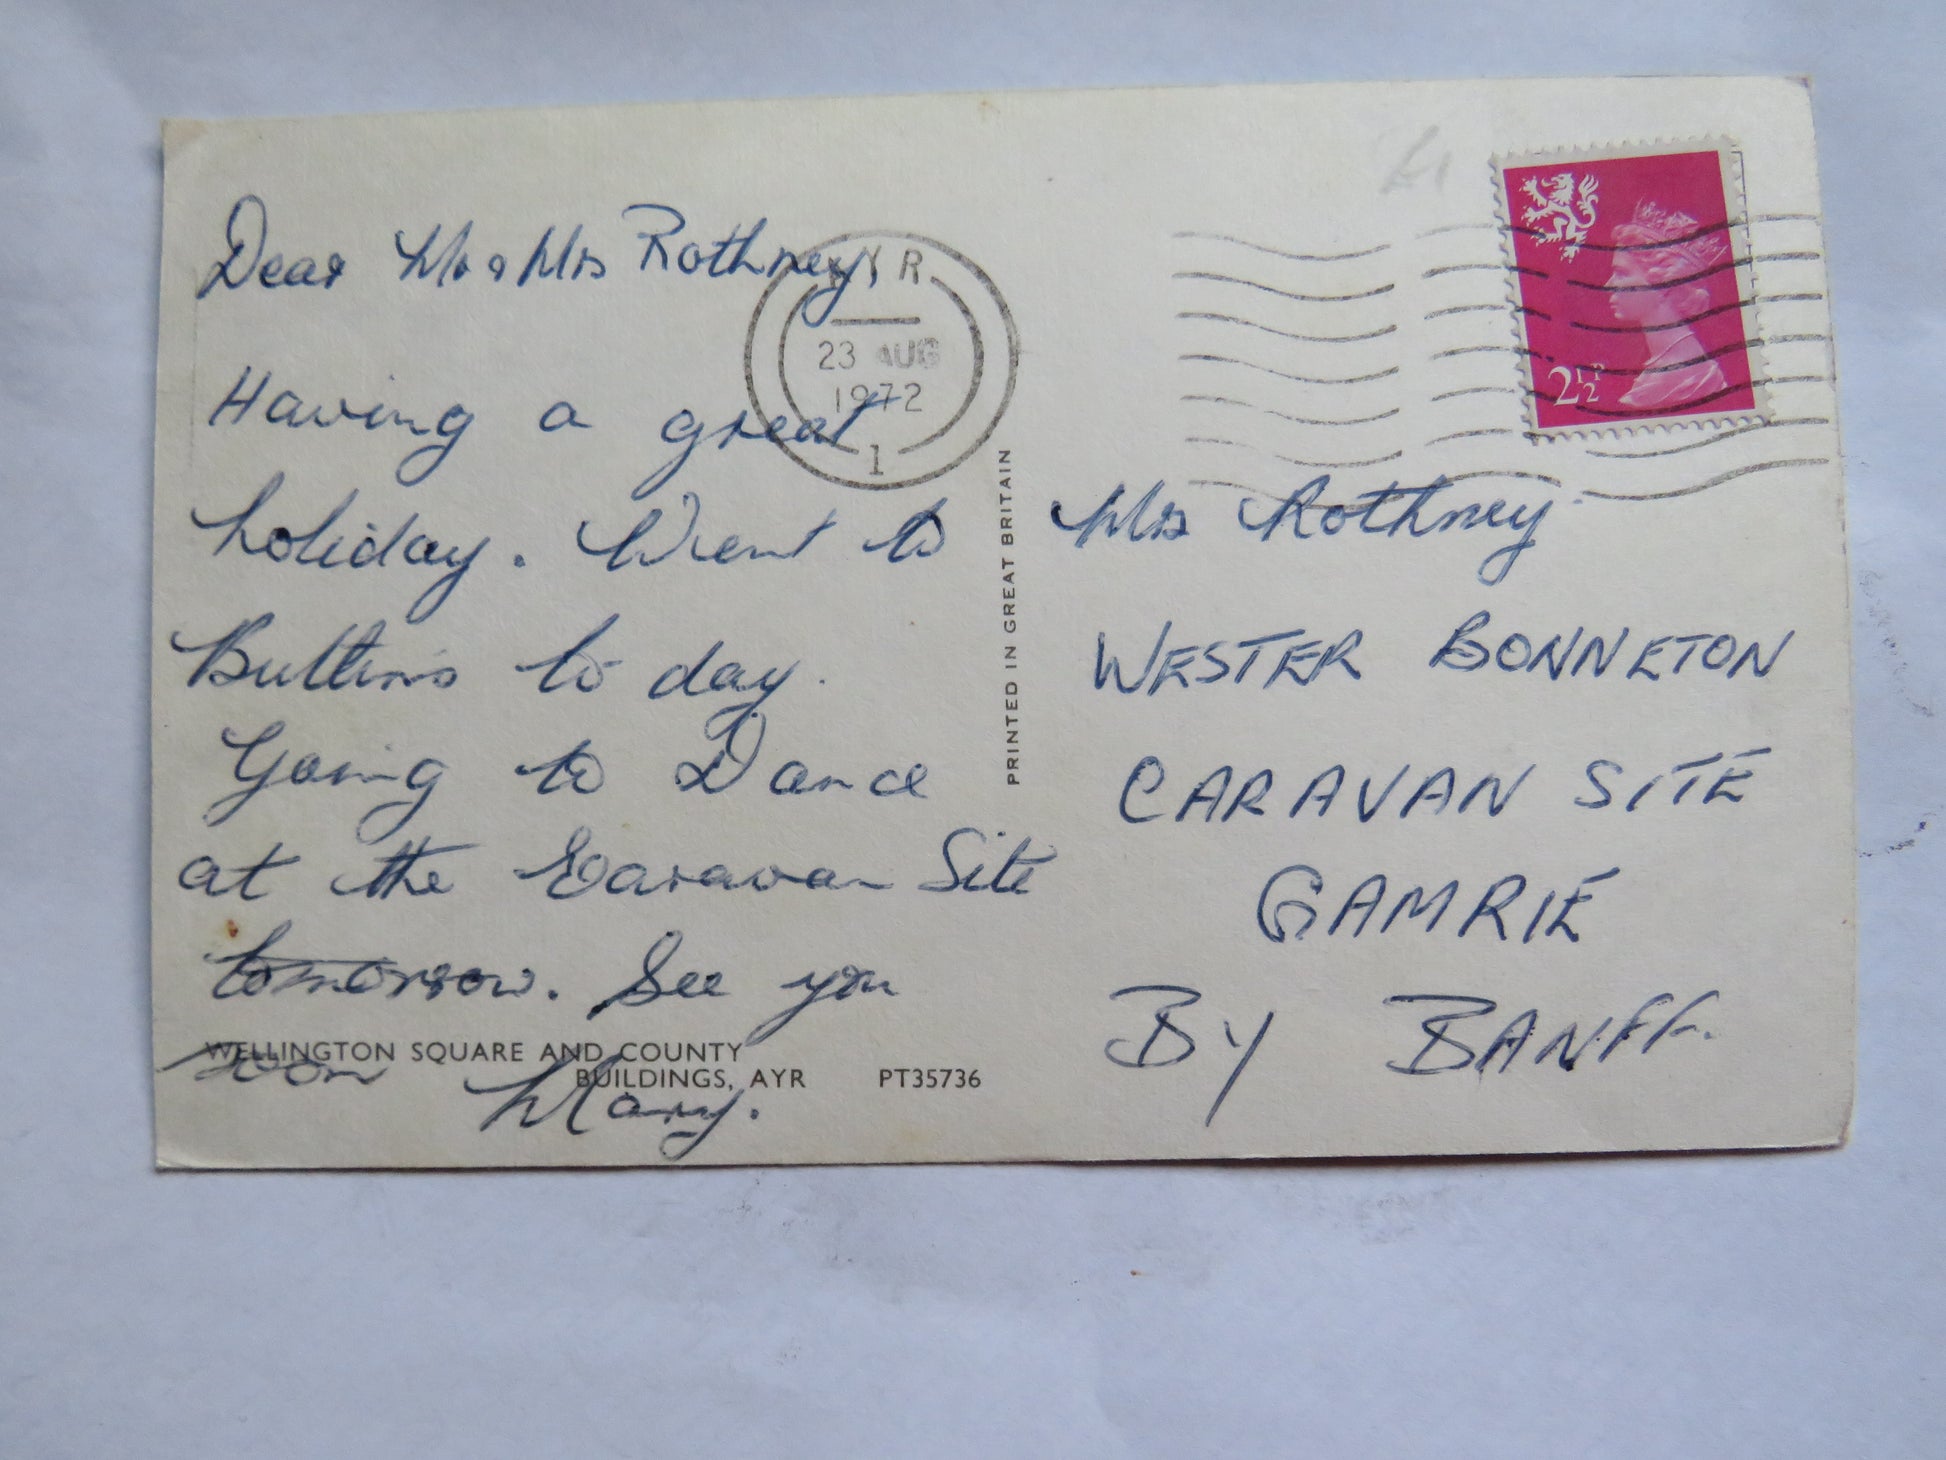 Dear Mr & Mrs Rothney,
Having a great
holiday. Went to
Buttins to day.
Going to Dance
at the Caravan Site
tomorrow. See you
soon Mary.
WELLINGTON SQUARE AND COUNTY
BUILDINGS, AYR PT35736
AYR
23 AUG
1972
1
PRINTED IN GREAT BRITAIN
2½P
Mrs Rothney
WESTER BONNETON
CARAVAN SITE
GAMRIE
BY BANFF.